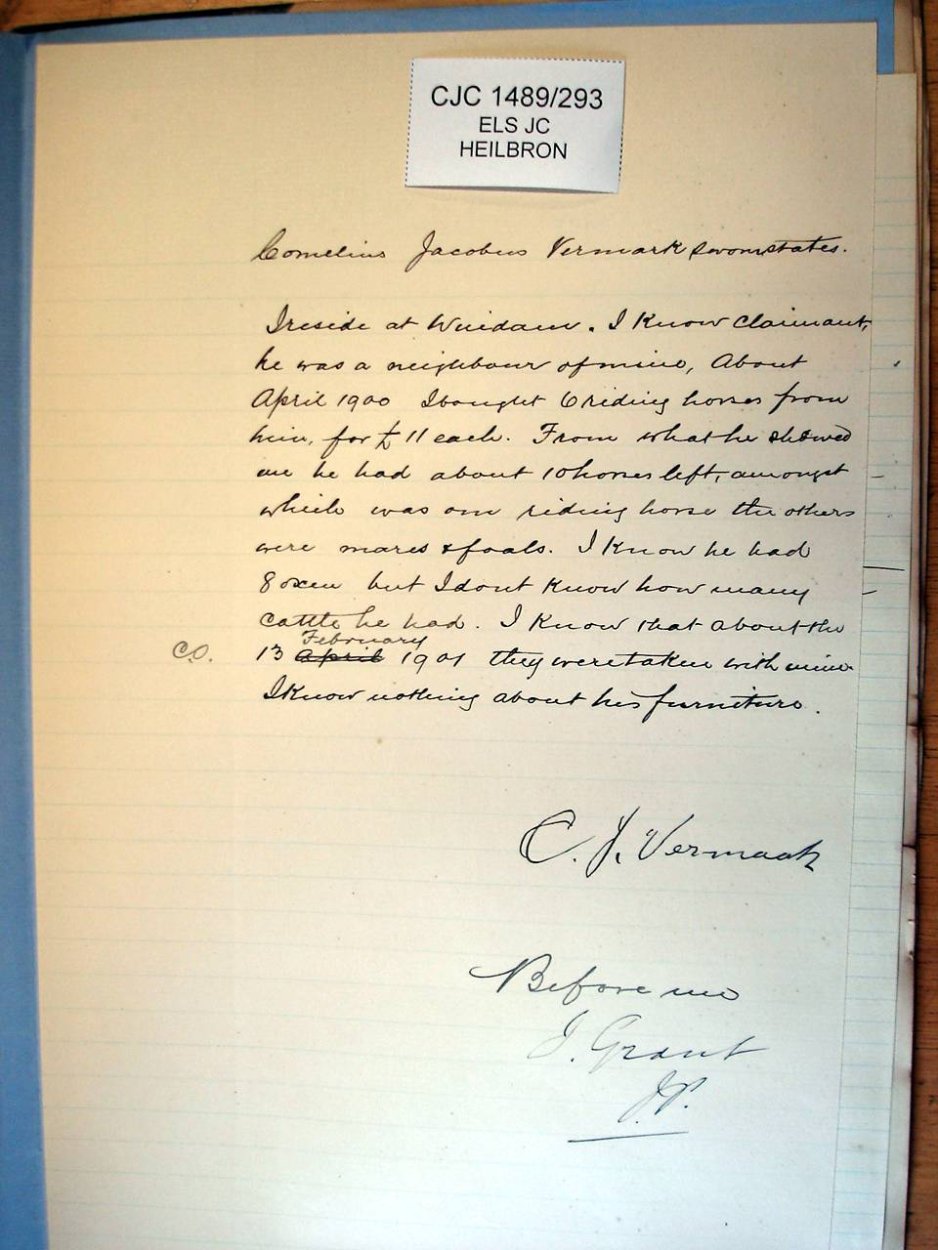 CJC 1489/293
ELS JC
HEILBRON
Cornelius Jacobus Vermark sworn states.
I reside at . I know claimant,
he was a neighbour of mine, About
April 1900 I bought 6 riding horses from
him, for £11 each. From what he showed
me he had about 10 horses left, amongst
which was one riding horse the others
were mares & foals. I know he had
8 oxen but I dont know how many
cattle he had. I know that about the
February
C.O. 13 April 1901 they were taken with mine
I know nothing about his furniture.
C. J. Vermaak
Before me
J. Grant
J.P.